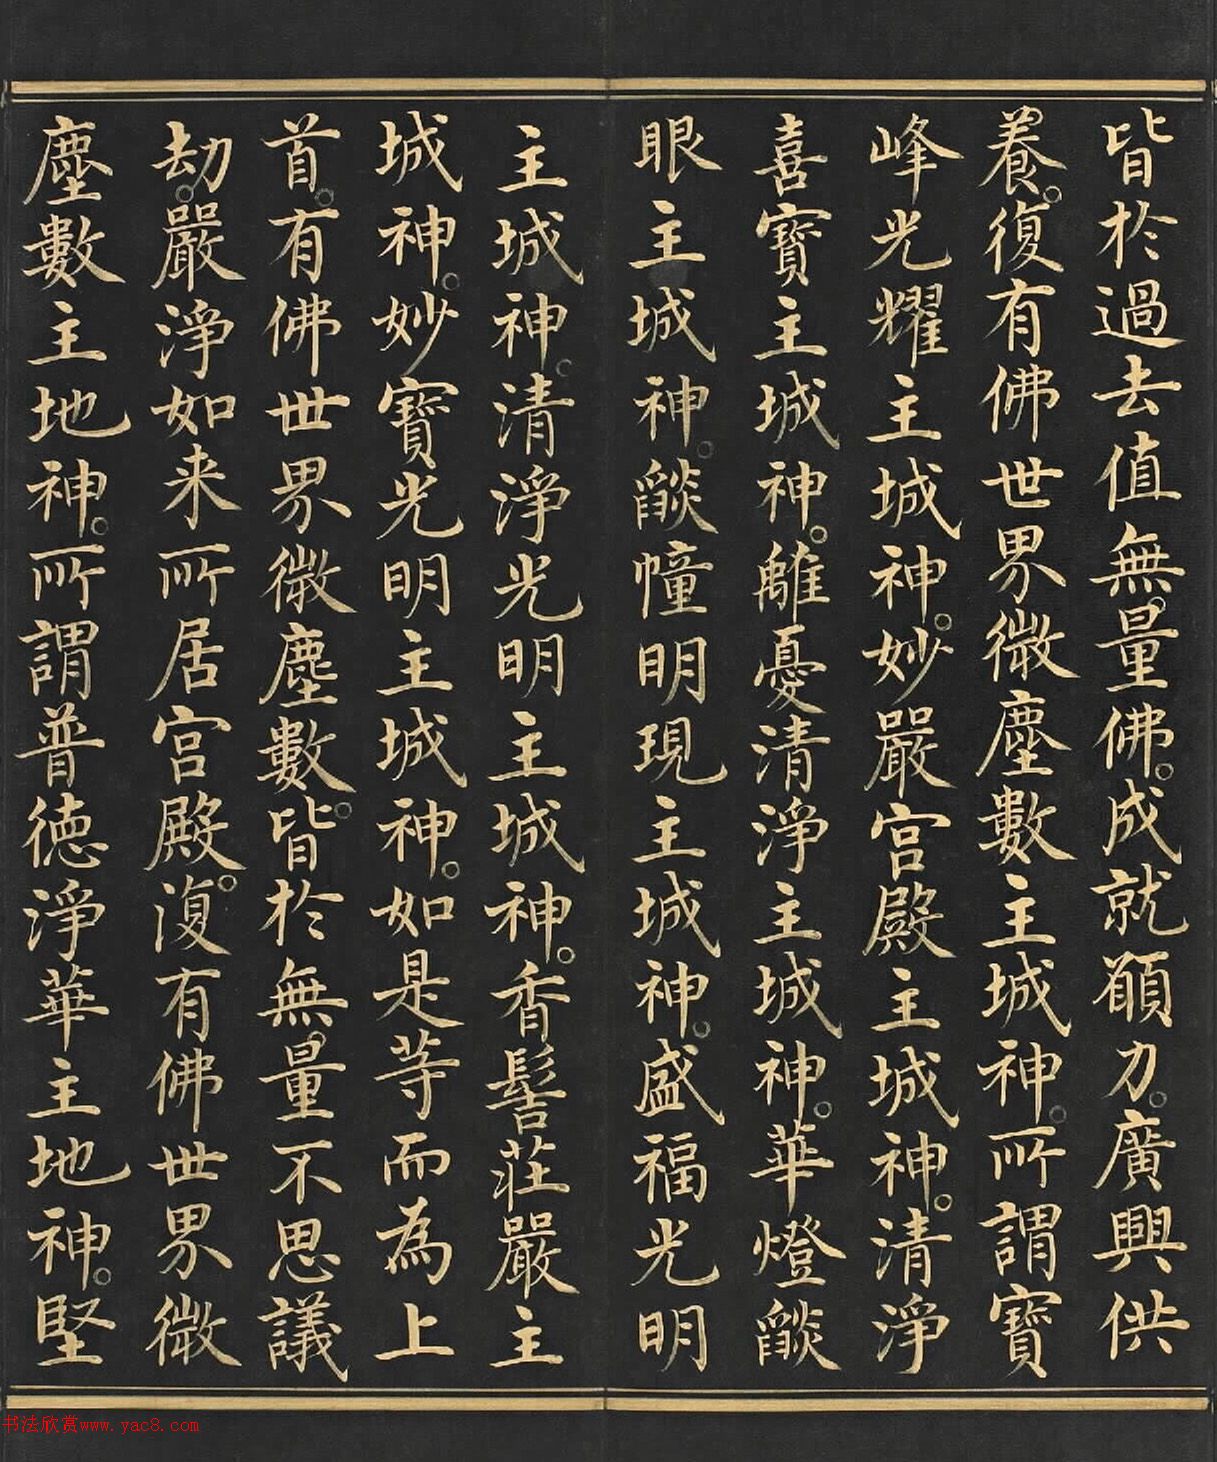 皆於過去值無量佛成就願力廣興供
養復有佛世界微塵數主城神所謂寶
峰光耀主城神妙嚴宮殿主城神清淨
喜寶主城神離憂清淨主城神華燈𦦨
眼主城神𦦨幢明現主城神盛福光明
主城神清淨光明主城神香髻莊嚴主
城神妙寶光明主城神如是等而為上
首有佛世界微塵數皆於無量不思議
劫嚴淨如来所居宮殿復有佛世界微
塵數主地神所謂普德淨華主地神堅
书法欣赏www.yac8.com